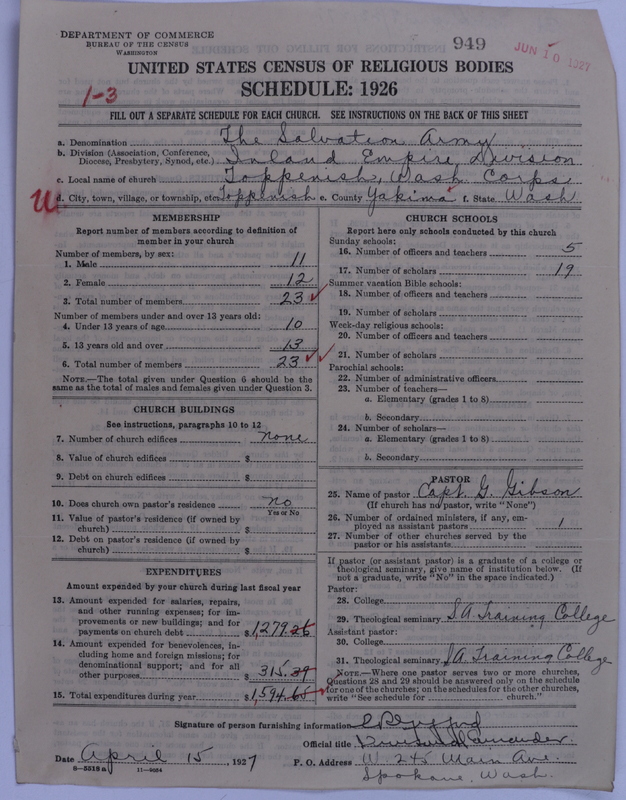 DEPARTMENT OF COMMERCE
BUREAU OF THE CENSUS
WASHINGTON
949
JUN 10 1927
UNITED STATES CENSUS OF RELIGIOUS BODIES
SCHEDULE: 1926
1-3
FILL OUT A SEPARATE SCHEDULE FOR EACH CHURCH. SEE INSTRUCTIONS ON THE BACK OF THIS SHEET
a. Denomination The Salvation Army
b. Division (Association, Conference, Diocese, Presbytery, Synod, etc.) Inland Empire Division
c. Local name of church Toppenish, Wash Corps
d. City, town, village, or township, etc. Toppenish e. County Yakima f. State Wash
MEMBERSHIP
Report number of members according to definition of
member in your church
Number of members, by sex:
1. Male 11
2. Female 12
3. Total number of members 23
Number of members under and over 13 years old:
4. Under 13 years of age 10
5. 13 years old and over 13
6. Total number of members 23
NOTE.—The total given under Question 6 should be
same as the total of males and females given under Question 3.
CHURCH BUILDINGS
See instructions, paragraphs 10 to 12
7. Number of church edifices none
8. Value of church edifices $
9. Debt on church edifices $
10. Does church own pastor's residence no
Yes or No
11. Value of pastor's residence (if owned by
church) $
12. Debt on pastor's residence (if owned by
church) $
EXPENDITURES
Amount expended by your church during last fiscal year
13. Amount expended for salaries, repairs,
and other running expenses; for im-
provements or new buildings; and for
payments on church debt $1,279.26
14. Amount expended for benevolences, in-
cluding home and foreign missions; for
denominational support; and for all
other purposes 315.39
15. Total expenditures during year $1,594.65
CHURCH SCHOOLS
Report here only schools conducted by this church
Sunday schools:
16. Number of officers and teachers 5
17. Number of scholars 19
Summer vacation Bible schools:
18. Number of officers and teachers
19. Number of scholars
Week-day religious schools:
20. Number of officers and teachers
21. Number of scholars
Parochial schools:
22. Number of administrative officers
23. Number of teachers—
a. Elementary (grades 1 to 8)
b. Secondary
24. Number of scholars—
a. Elementary (grades 1 to 8)
b. Secondary
PASTOR
25. Name of pastor Capt. G. Gibson
(If church has no pastor, write "None")
26. Number of ordained ministers, if any, em-
ployed as assistant pastors 1
27. Number of other churches served by the
pastor or his assistants
If pastor (or assistant pastor) is a graduate of a college or
theological seminary, give name of institution below. (If
not a graduate, write "No" in the space indicated.)
Pastor:
28. College
29. Theological seminary S A Training College
Assistant pastor:
30. College
31. Theological seminary S A Training College
NOTE.—Where one pastor serves two or more churches,
Questions 28 and 29 should be answered only on the schedule
for one of the churches; on the schedules for the other churches,
write "See schedule for church."
Signature of person furnishing information
Official title Divisional Commander
Date April 15, 1927 P. O. Address W. 245 Main Ave.
8-5519a 11-9024
Spokane, Wash.